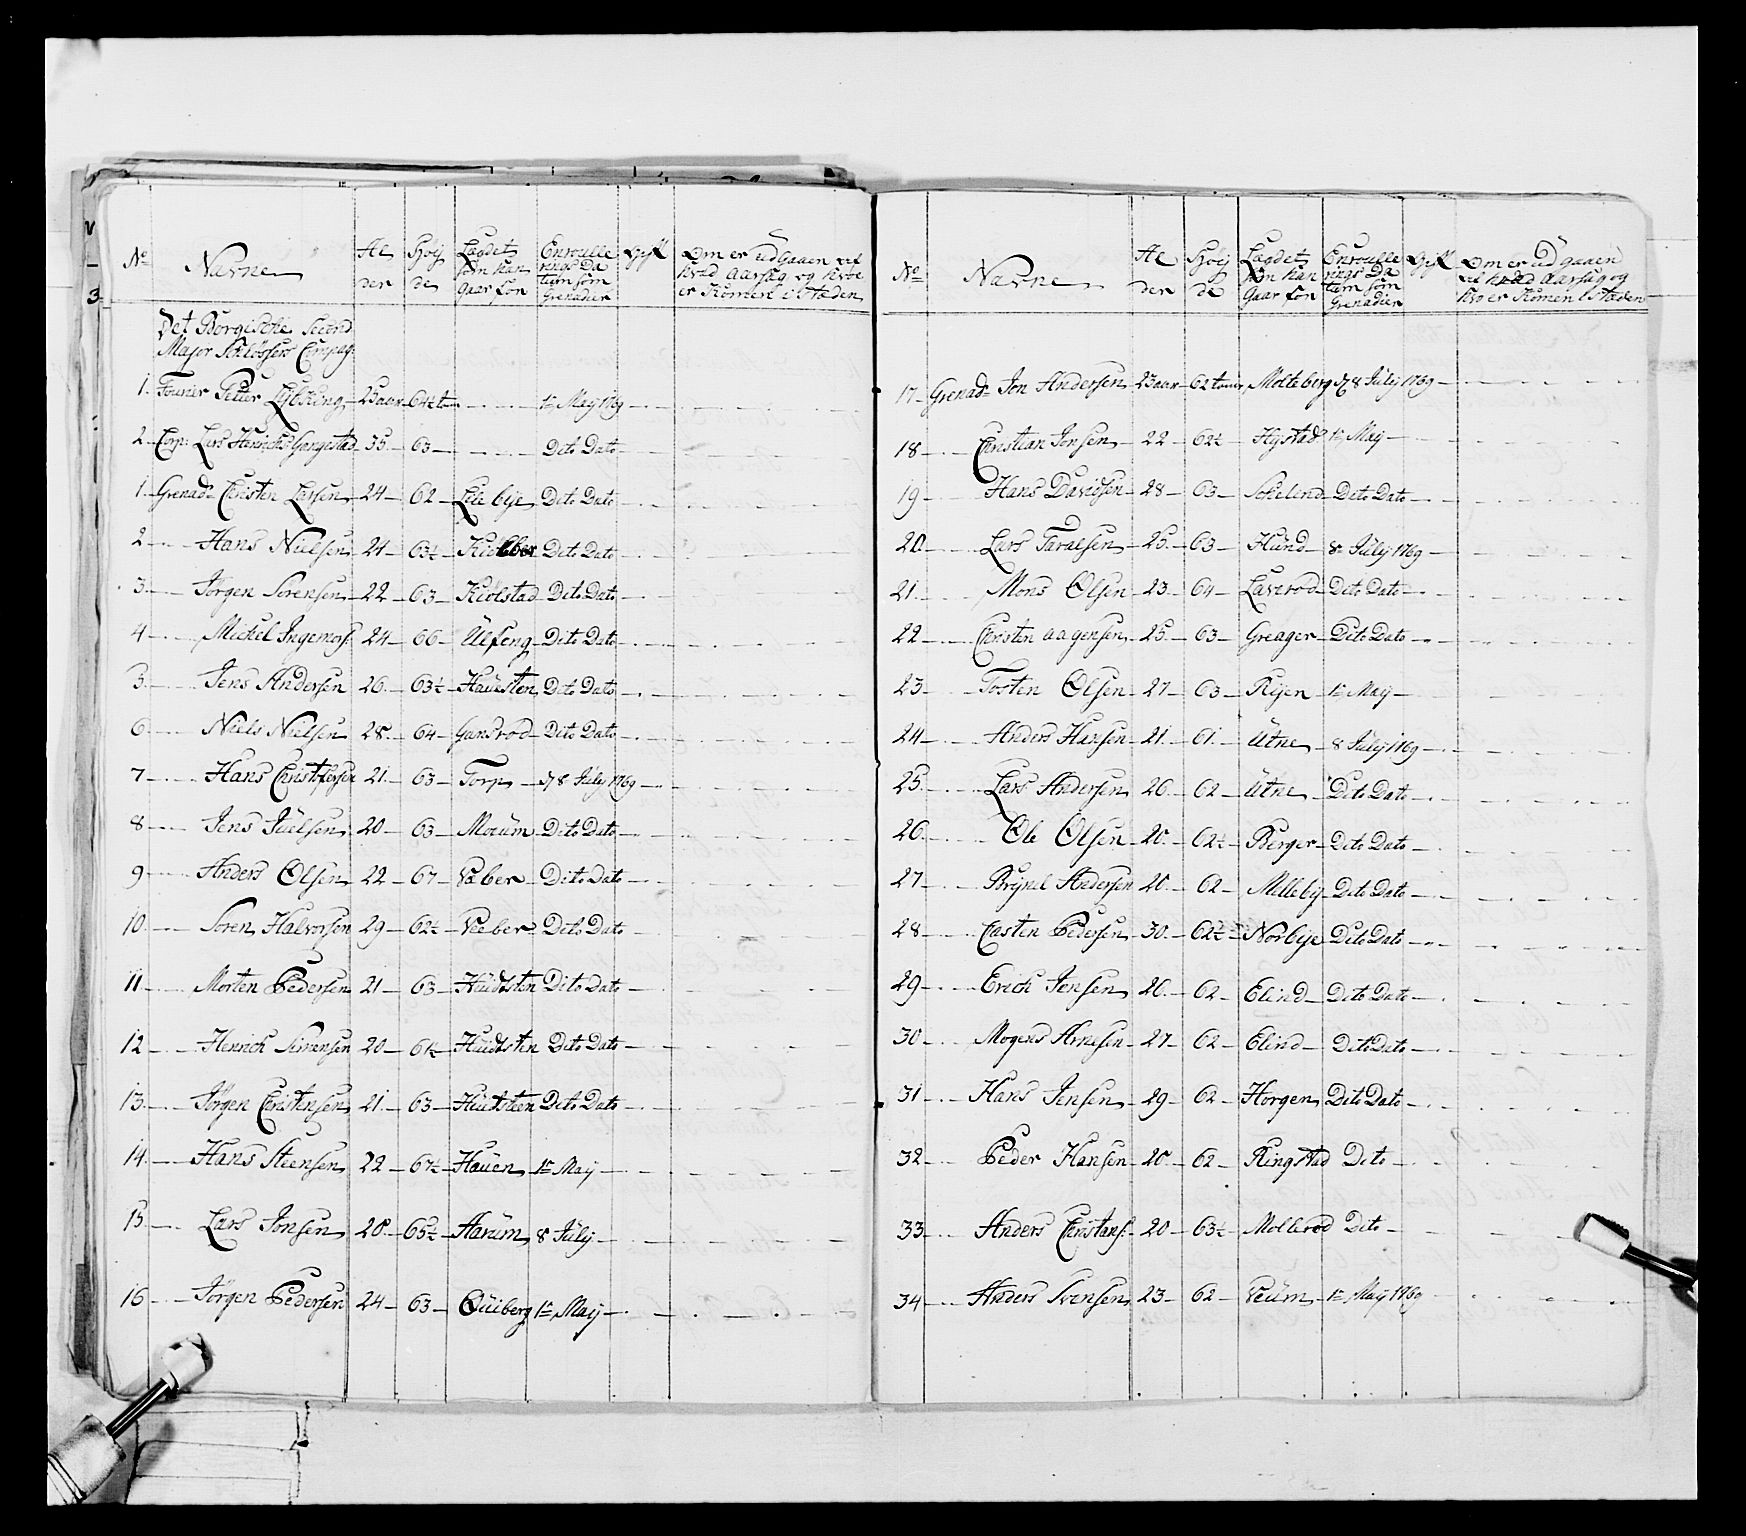 No Navne Al Høy Lægdet Enroulle Gift Om er udgaaen ved
der de som han rings Da hvad aarsag og hvor
gaar for tum som er Komen i Stæden
Grenadier
Det Borgische Secnd
Major Schløssers Compag:
1. Fourier Petter Lybking 25 aar 64½ tom 1te Maij 1769
2 Corp: Lars Hanses Gangestad 35 63 Dito Dato
1. Grenad Christen Larsen 24 62 Lie bye Dito Dato
2 Hans Nielsen 24 63½ Dito Dato
3 Jørgen Sørensen 22 63 Kiølstad Dito Dato
4 Mickel Ingemors: 24 66 Ulfeng Dito Dato
5 Jens Andersen 26 63½ Hauesten Dito Dato
6 Niels Nielsen 28 64 Gansrød Dito Dato
7 Hans Christophersen 21 63 Torp d 8 Julij 1769
8 Jens Juelsen 20 63 Moeum Dito Dato
9 Anders Olsen 22 67 Veber Dito Dato
10 Søren Halvorsen 29 62½ Veeber Dito Dato
11 Morten Pedersen 21 63 Huidsten Dito Dato
12 Henrich Simensen 20 61½ Huidsten Dito Dato
13 Jørgen Christensen 21 63 Huitsteen Dito Dato
14 Hans Steensen 22 67½ Hauen 1te Maij
15 Lars Jonsen 20 65½ Aarum 8 Julij
16 Jørgen Pedersen 24 63 Quiberg 1te Maij
No Navne Al Høy Lægdet Enroulle Gift Om er udgaaen
der de som han rings Da ved hvad Aarsag og
Gaar for tum som hvo er Komen i Stæden
Grenadier
17 Grenad Jon Andersen 23 aar 62 tomr Molteberg d 8 Julij 1769
18 Christian Jonsen 22 62½ Hystad 1te Maij
19 Hans Davidsen 28 63 Sokelend Dito Dato
20 Lars Taralsen 25 63 Hund 8 Julij 1769
21 Mons Olsen 23 64 Laverød Dito Dato
22 Christen Aagensen 25 63 Greager Dito Dato
23 Tosten Olsen 27 63 Rijen 1te Maij
24 Anders Hansen 21 61 Utne 8 Julij 1769
25 Lars Andersen 26 62 Utne Dito Dato
26 Ole Olsen 20 62½ Berger Dito Dato
27 Brynel Andersen 20 62 Melleby Dito Dato
28 Casten Pedersen 30 62½ Norbye Dito Dato
29 Erich Jensen 26 62 Elind Dito Dato
30 Mogens Arnesen 27 62 Elind Dito Dato
31 Hans Jensen 29 62 Horgen Dito Dato
32 Peder Hansen 20 62 Ringstad Dito
33 Anders Christians: 20 63½ Mollerød Dito
34 Anders Svensen 23 62 Veum 1te Maij 1769